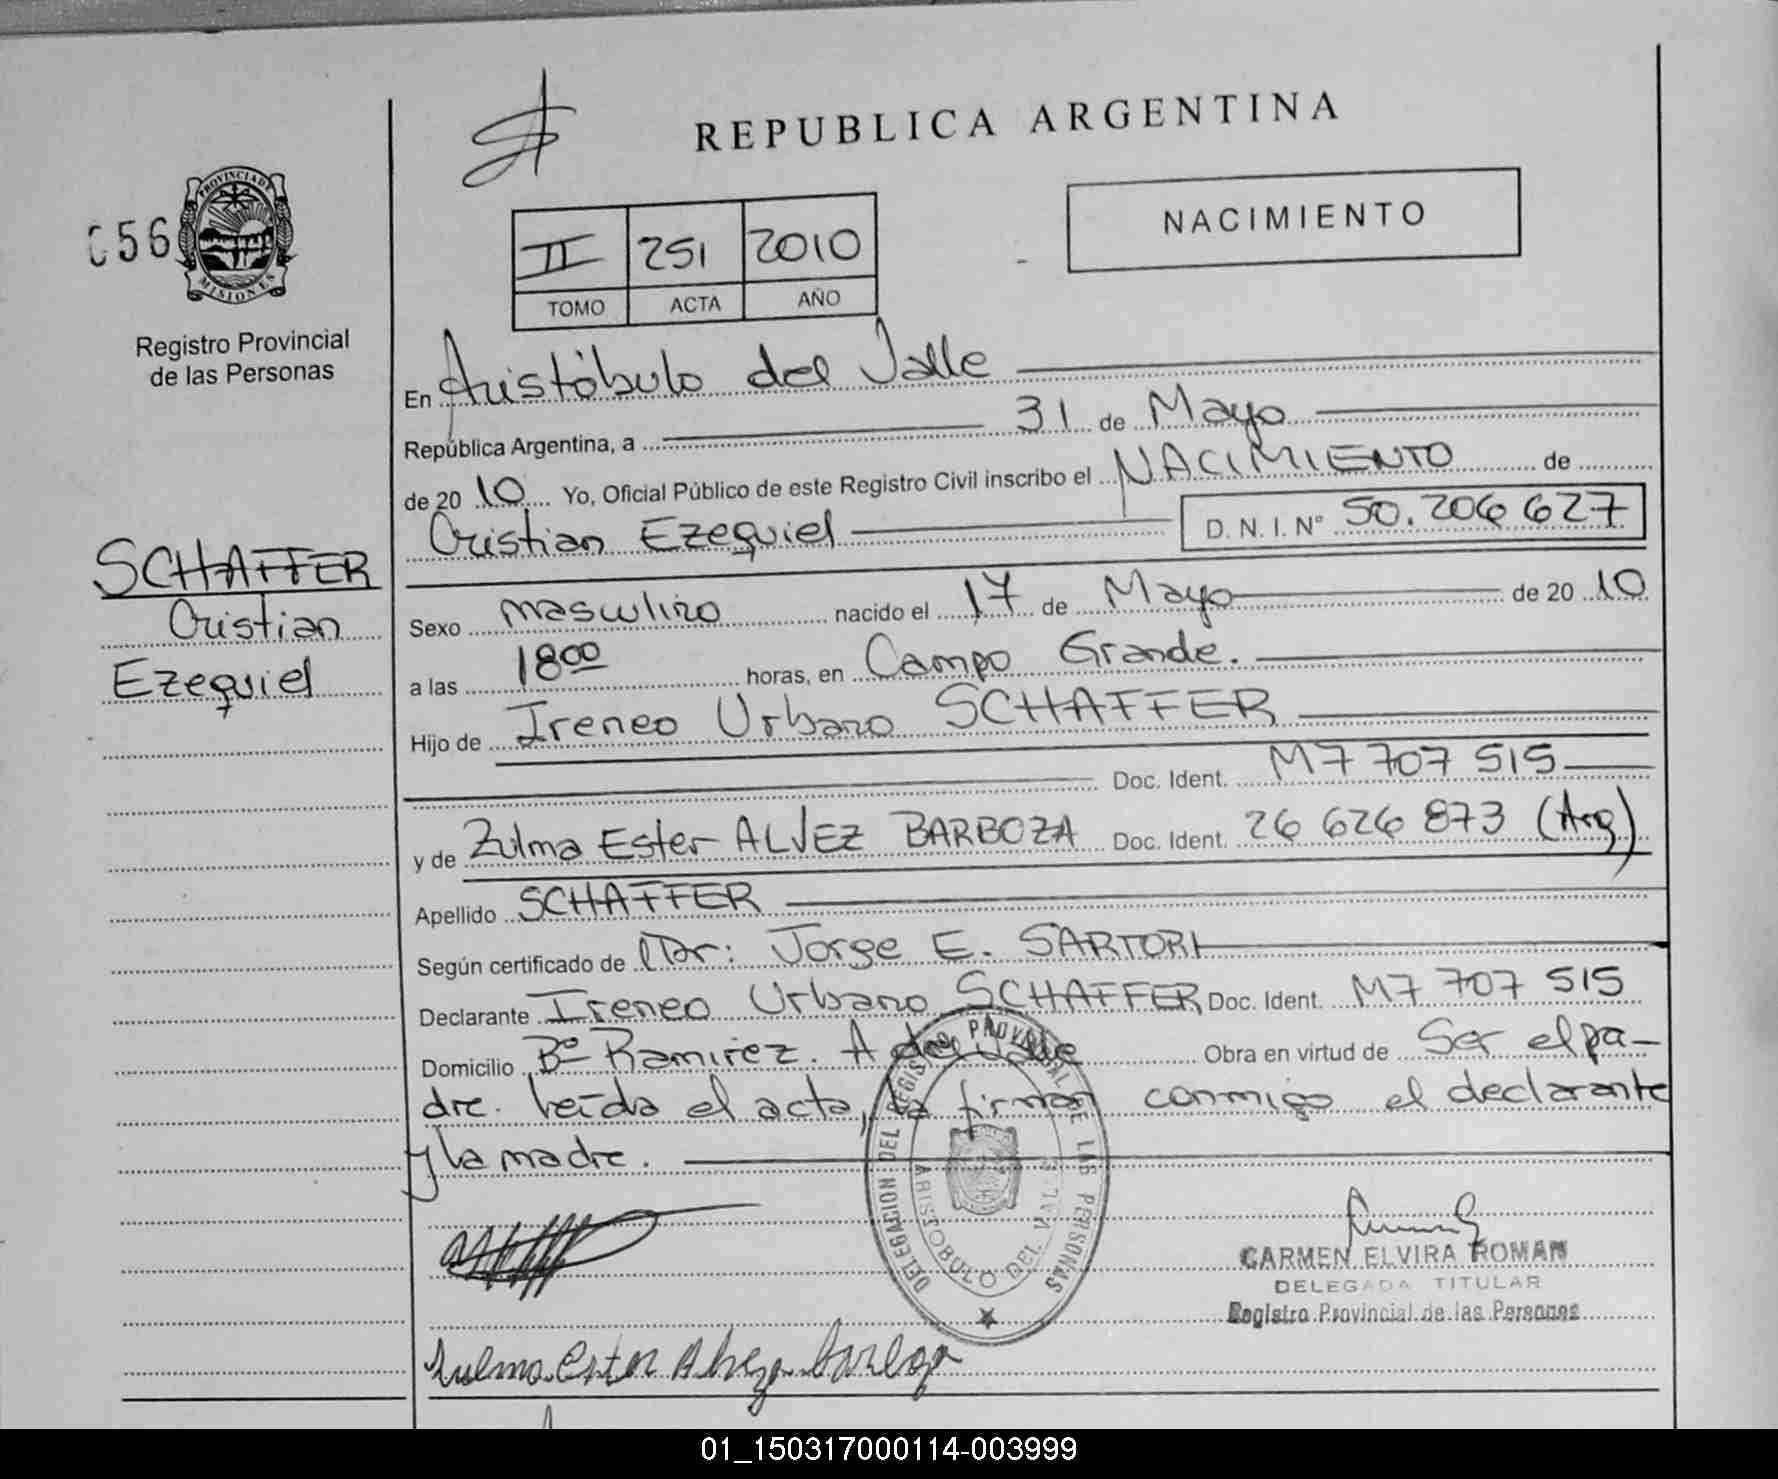 REPUBLICA ARGENTINA
NACIMIENTO
056
PROVINCIA DE
MISIONES
Registro Provincial
de las Personas
II 251 2010
TOMO ACTA AÑO
En Aristóbulo del Valle
República Argentina, a 31 de Mayo
de 2010 Yo, Oficial Público de este Registro Civil inscribo el NACIMIENTO de
Cristian Ezequiel D. N. I. N° 50.206 627
SCHAFFER
Cristian
Ezequiel
Sexo masculino nacido el 17 de Mayo de 2010
a las 18 00 horas, en Campo Grande.
Hijo de Ireneo Urbano SCHAFFER
Doc. Ident. M7 707 515
y de Zulma Ester ALVEZ BARBOZA Doc. Ident. 26 626 873 (Arg)
Apellido SCHAFFER
Según certificado de Dr: Jorge E. SARTORI
Declarante Ireneo Urbano SCHAFFER Doc. Ident. M7 707 515
Domicilio Bº Ramirez. A del Valle Obra en virtud de Ser el pa-
dre. Leída el acta, la firman conmigo el declarante
y la madre.
DELEGACION DEL REGISTRO PROVINCIAL DE LAS PERSONAS
ARISTOBULO DEL VALLE
CARMEN ELVIRA ROMAN
DELEGADA TITULAR
Registro Provincial de las Personas
Zulma Ester Alvez Barboza
01_150317000114-003999